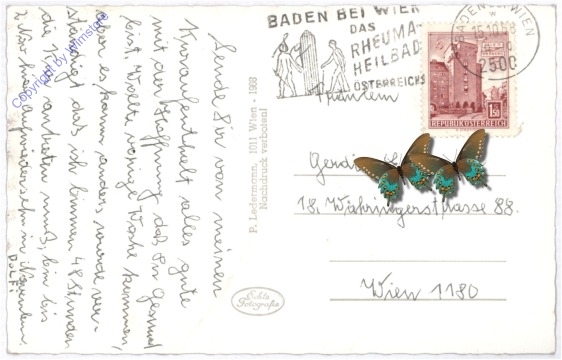 Sende Dir von meinem
Kuraufenthalt alles gute
mit der Hoffnung daß Du Gesund
bist. Wollte vorige Woche kommen,
aber es kam anders wurde ver-
ständigt daß ich binnen 48 Stunden
die Kur antreten muß, bin bis
DOLFI
P. Ledermann, 1011 Wien - 1968
Nachdruck verboten!
Echte
Fotografie
BADEN BEI WIEN
DAS
RHEUMA-
HEILBAD
ÖSTERREICHS
BADEN B. WIEN
2500
1.50
REPUBLIK ÖSTERREICH
Fräulein
18. Währingerstrasse 88.
Wien 1180
Copyright by Wimstore